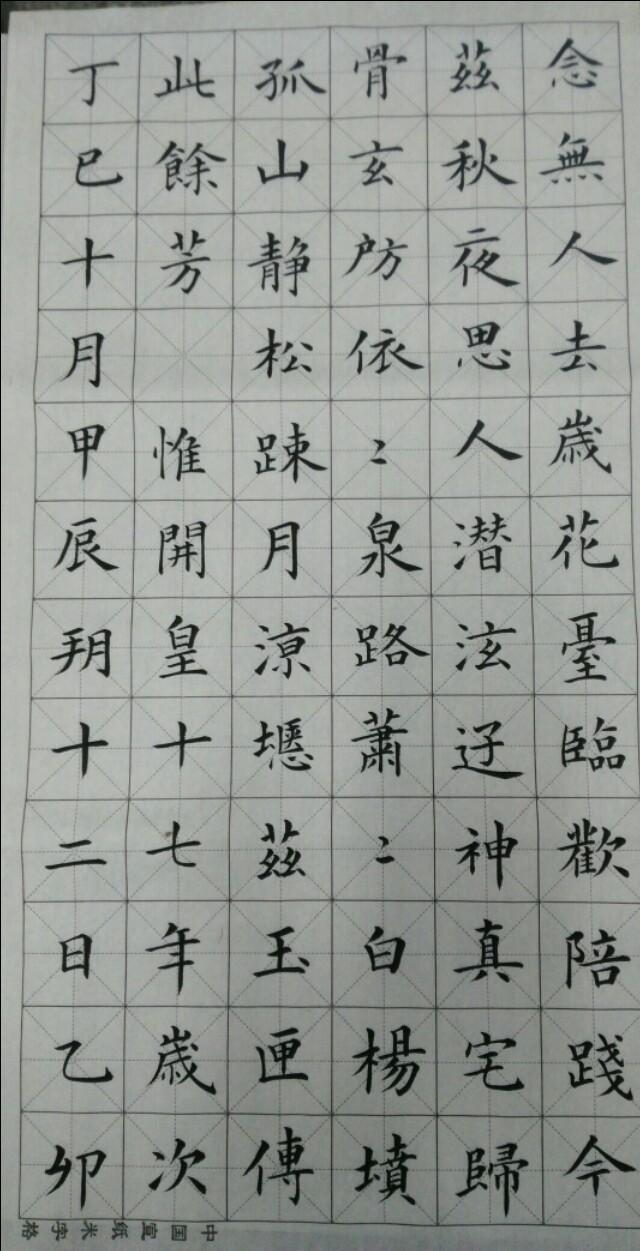 念無人去嵗花臺臨歡陪踐今
茲秋夜思人潜泫迓神真宅歸
骨玄房依〻泉路蕭〻白楊墳
孤山静松踈月涼瘞茲玉匣傳
此餘芳　惟開皇十七年嵗次
丁巳十月甲辰朔十二日乙卯
中国宣纸米字格